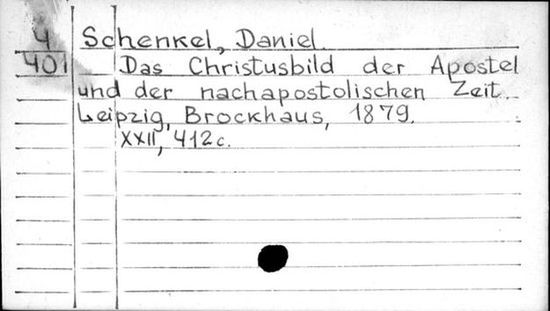 4 Schenkel, Daniel.
401 Das Christusbild der Apostel
und der nachapostolischen Zeit.
Leipzig, Brockhaus, 1879.
XXII, 412 c.